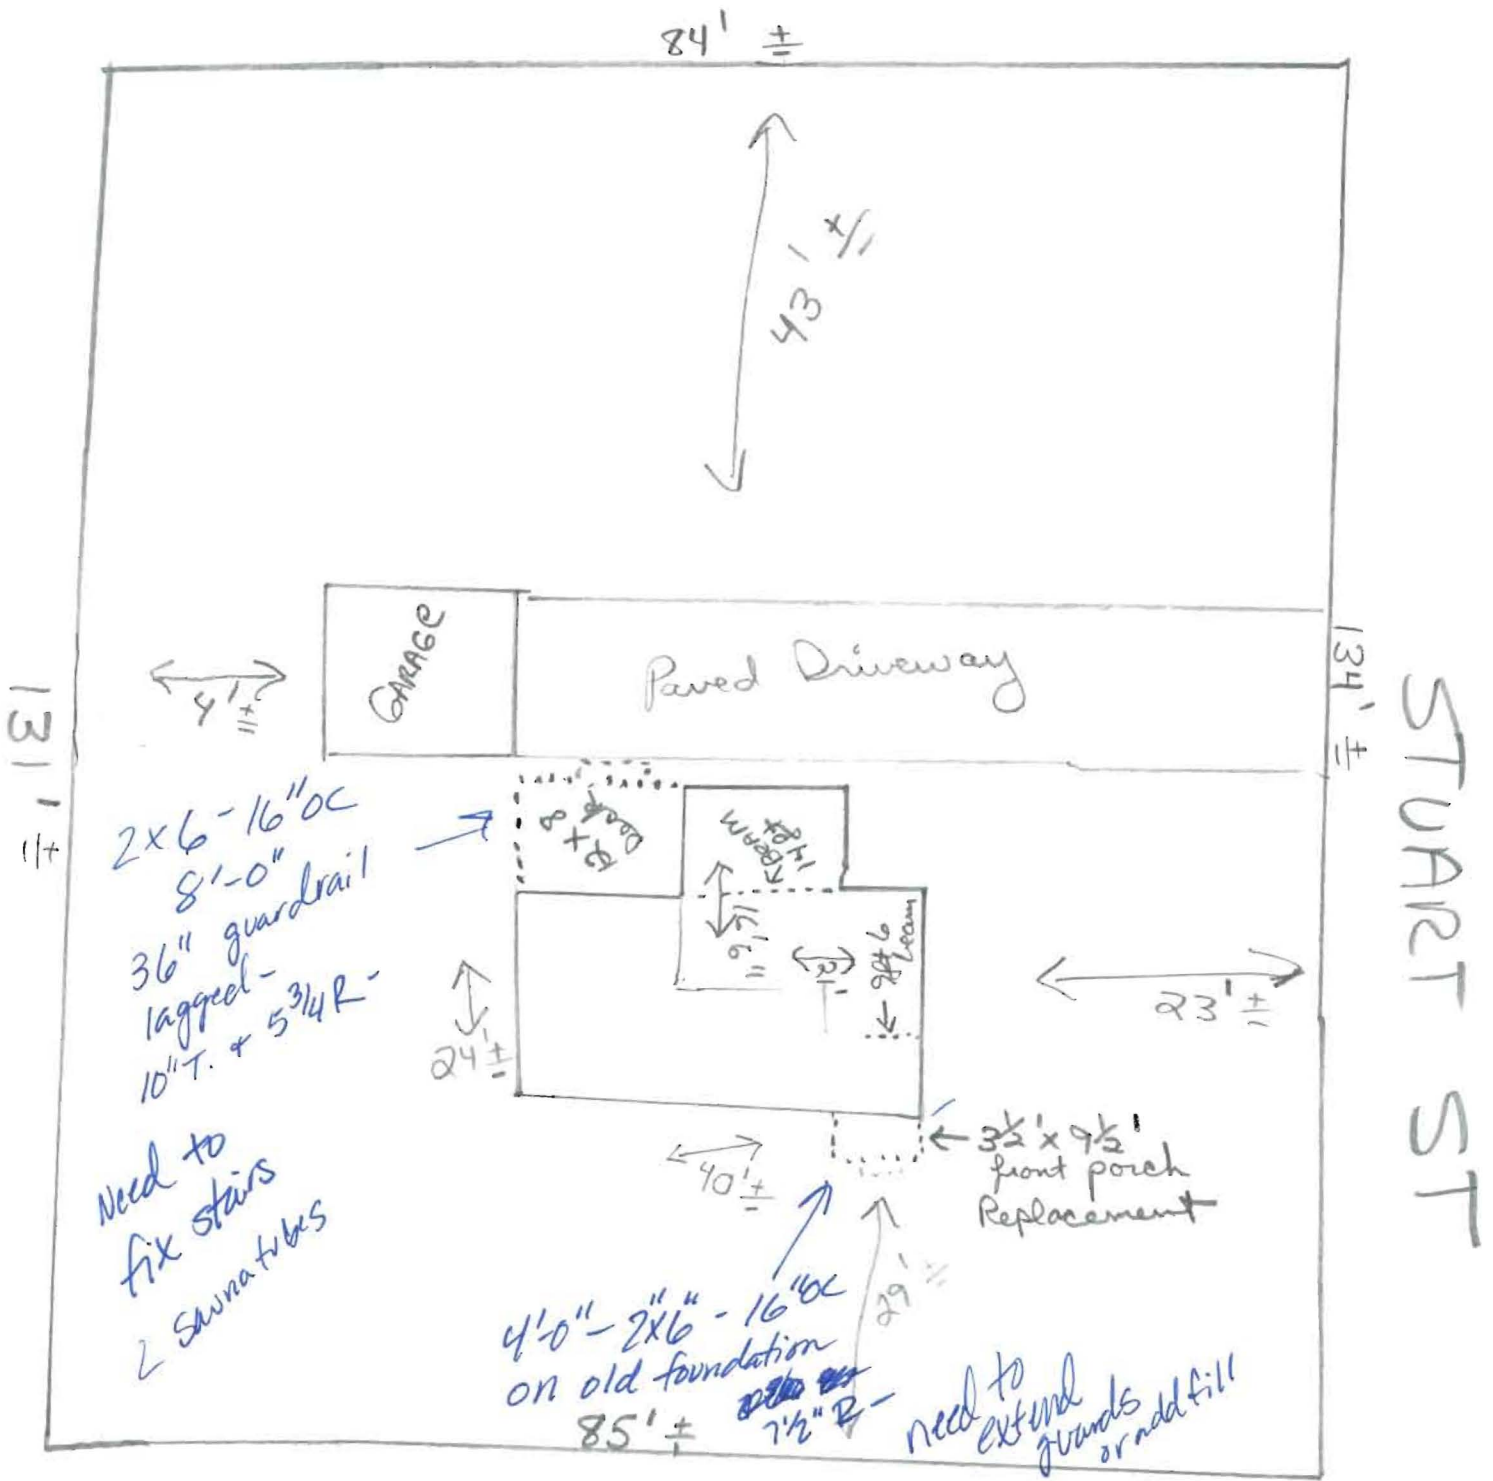 84' ±
43' ±
GARAGE
Paved Driveway
4' ±
134' ±
STUART ST
131' ±
2x6 - 16" OC
8'-0"
36" guardrail
lagged -
10" T. + 5 3/4 R -
Need to
fix stairs
2 sauna tubes
8 x
Deck
14 ft
BEAM
16' 6"
9ft 6
beam
24' ±
23' ±
40' ±
← 3½' x 9½'
front porch
Replacement
29' ±
4'-0" - 2"x6" - 16" OC
on old foundation
7½" R -
need to
extend
guards
or add fill
85' ±